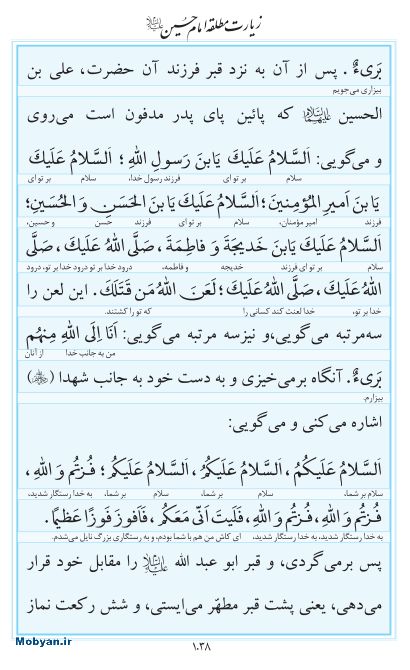 زیارت مطلقه امام حسین علیه‌السلام
بَرىءٌ. پس از آن به نزد قبر فرزند آن حضرت، علی بن
بیزاری می‌جویم
الحسین علیهماالسلام که پائین پای پدر مدفون است می‌روی
و می‌گویی: اَلسَّلامُ عَلَيكَ يَابنَ رَسولِ اللهِ؛ اَلسَّلامُ عَلَيكَ
سلام بر تو ای فرزند رسول خدا، سلام بر تو ای
يَا بنَ اَميرِ المُؤمِنينَ؛ اَلسَّلامُ عَلَيكَ يَا بنَ الحَسَنِ وَ الحُسَينِ؛
فرزند امیر مؤمنان، سلام بر تو ای فرزند حسن و حسین،
اَلسَّلامُ عَلَيكَ يَابنَ خَديجَةَ وَ فاطِمَةَ، صَلَّى اللهُ عَلَيكَ، صَلَّى
سلام بر تو ای فرزند خدیجه و فاطمه، درود خدا بر تو درود خدا بر تو، درود
اللهُ عَلَيكَ، صَلَّى اللهُ عَلَيكَ؛ لَعَنَ اللهُ مَن قَتَلَكَ. این لعن را
خدا بر تو، خدا لعنت کند کسانی را که تو را کشتند.
سه‌مرتبه می‌گویی،و نیزسه مرتبه می‌گویی: اَنَا اِلَى اللهِ مِنهُم
من به جانب خدا از آنان
بَرىءٌ. آنگاه برمی‌خیزی و به دست خود به جانب شهدا ()
بیزارم.
اشاره می‌کنی و می‌گویی:
اَلسَّلامُ عَلَيكُم، اَلسَّلامُ عَلَيكُم، اَلسَّلامُ عَلَيكُم؛ فُزتُم وَ اللهِ،
سلام بر شما، سلام بر شما، سلام بر شما، به خدا رستگار شدید،
فُزتُم وَ اللهِ، فُزتُم وَ اللهِ، فَلَيتَ اَنّى مَعَكُم، فَاَفوزَ فَوزًا عَظيمًا.
به خدا رستگار شدید، به خدا رستگار شدید، ای کاش من هم با شما بودم، و به رستگاری بزرگ نایل می‌شدم.
پس برمی‌گردی، و قبر ابو عبد الله علیه‌السلام را مقابل خود قرار
می‌دهی، یعنی پشت قبر مطهّر می‌ایستی، و شش رکعت نماز
Mobyan.ir
۱۰۳۸